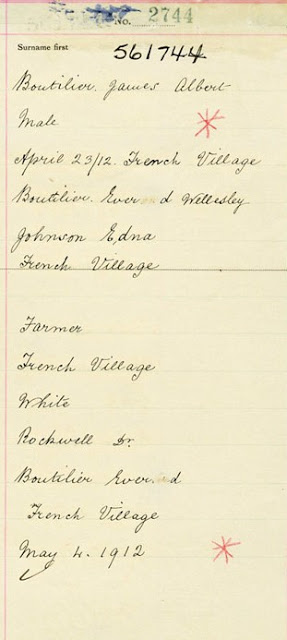 No. 2744
Surname first 561744
Boutilier. James Albert
Male
April 23/12. French Village
Boutilier. Everard Wellesley
Johnson Edna
French Village
Farmer
French Village
White
Rockwell Dr.
Boutilier Everard
French Village
May 4. 1912